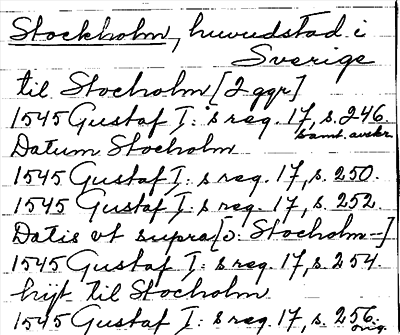 Stockholm, huvudstad i
Sverige
til Stocholm [2 ggr]
1545 Gustaf I:s reg. 17, s. 246
samt. avskr.
Datum Stocholm
1545 Gustaf I:s reg. 17, s. 250.
1545 Gustaf I:s reg. 17, s. 252.
Datis vt supra [ɔ: Stocholm-]
1545 Gustaf I:s reg. 17, s. 254
hijt til Stocholm
1545 Gustaf I:s reg. 17, s. 256.
orig.